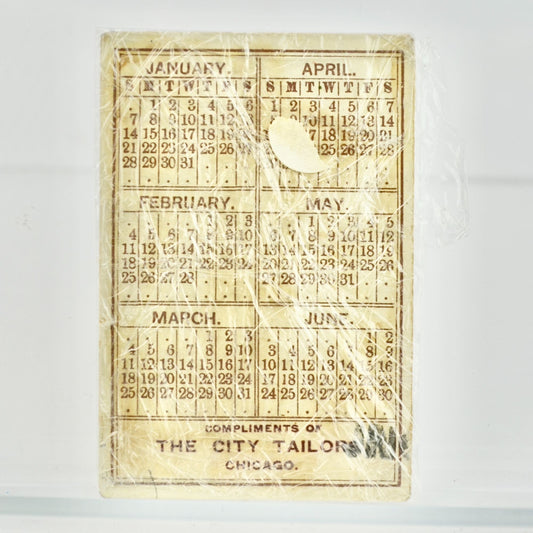 JANUARY.
S M T W T F S
1 2 3 4 5 6
7 8 9 10 11 12 13
14 15 16 17 18 19 20
21 22 23 24 25 26 27
28 29 30 31
APRIL.
S M T W T F S
1 2 3 4 5 6 7
8 10 11 12 13 14
15 18 19 20 21
22 25 26 27 28
29 30
FEBRUARY.
1 2 3
4 5 6 7 8 9 10
11 12 13 14 15 16 17
18 19 20 21 22 23 24
25 26 27 28
MAY.
1 2 3 4 5
6 7 8 9 10 11 12
13 14 15 16 17 18 19
20 21 22 23 24 25 26
27 28 29 30 31
MARCH.
1 2 3
4 5 6 7 8 9 10
11 12 13 14 15 16 17
18 19 20 21 22 23 24
25 26 27 28 29 30 31
JUNE.
1 2
3 4 5 6 7 8 9
10 11 12 13 14 15 16
17 18 19 20 21 22 23
24 25 26 27 28 29 30
COMPLIMENTS OF
THE CITY TAILORS
CHICAGO.